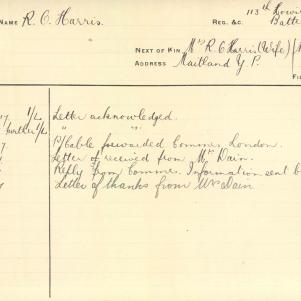 NAME R. O. Harris.
REG. &C. 113th Howit
Batte
NEXT OF KIN Mrs R O Harris (Wife)
ADDRESS Maitland Y. P.
FI
1/2 Letter acknowledged.
" "
P/Cable forwarded Commrs. London.
Letter of received from Mrs Dain.
Reply from Commrs. Information sent
Letter of thanks from Mrs Dain